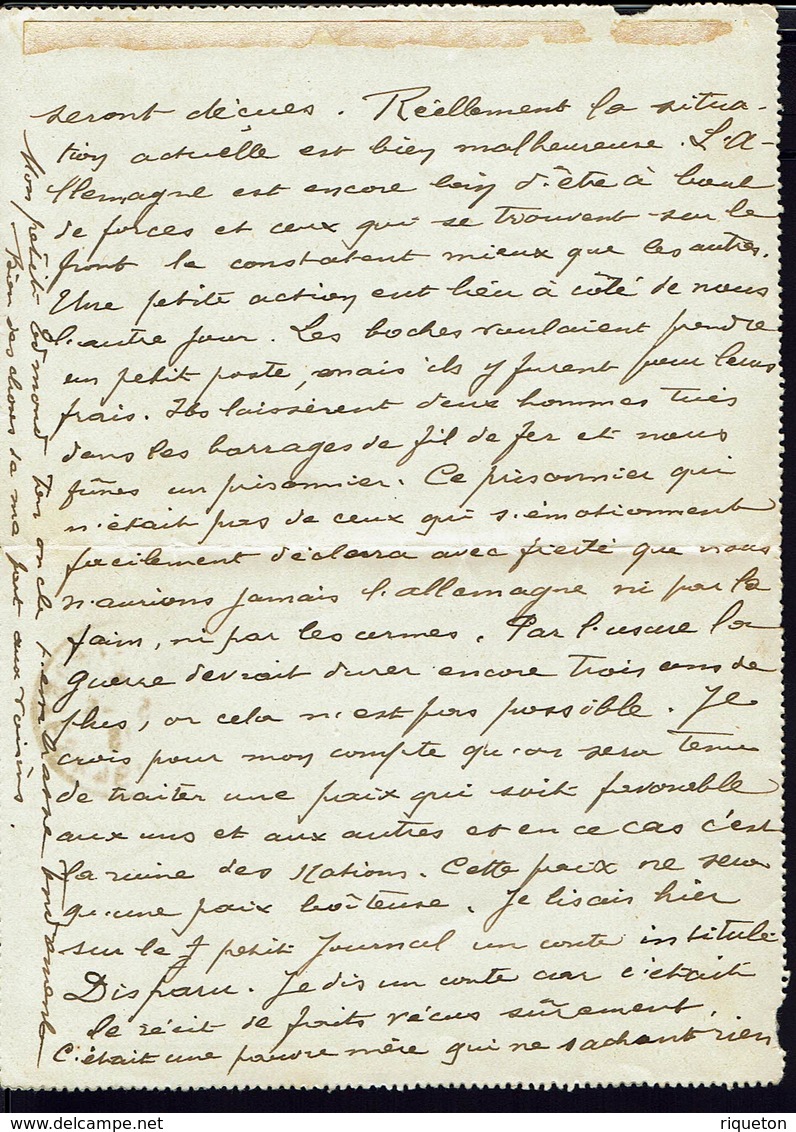 seront déçues. Réellement la situa-
tion actuelle est bien malheureuse. L'A-
llemagne est encore loin d'être à bout
de forces et ceux qui se trouvent sur le
front le constatent mieux que les autres.
Une petite action eut lieu à côté de nous
l'autre jour. Les boches voulaient prendre
un petit poste, mais ils y furent pour leurs
frais. Ils laissèrent deux hommes tués
dans les barrages de fil de fer et nous
fîmes un prisonnier. Ce prisonnier qui
n'était pas de ceux qui s'émotionnent
facilement déclara avec fierté que nous
n'aurions jamais l'allemagne ni par la
faim, ni par les armes. Par l'usure la
guerre devrait durer encore trois ans de
plus, or cela n'est pas possible. Je
crois pour mon compte qu'on sera tenu
de traiter une paix qui soit favorable
aux uns et aux autres et en ce cas c'est
la ruine des Nations. Cette paix ne sera
qu'une paix boîteuse. Je lisais hier
sur le petit Journal un conte intitulé
Disparu. Je dis un conte car c'était
le récit de faits vécus sûrement,
C'était une pauvre mère qui ne sachant rien
Mon petit Edmond ton oncle t'embrasse tendrement
Bien des choses de ma part aux voisins.
riqueton